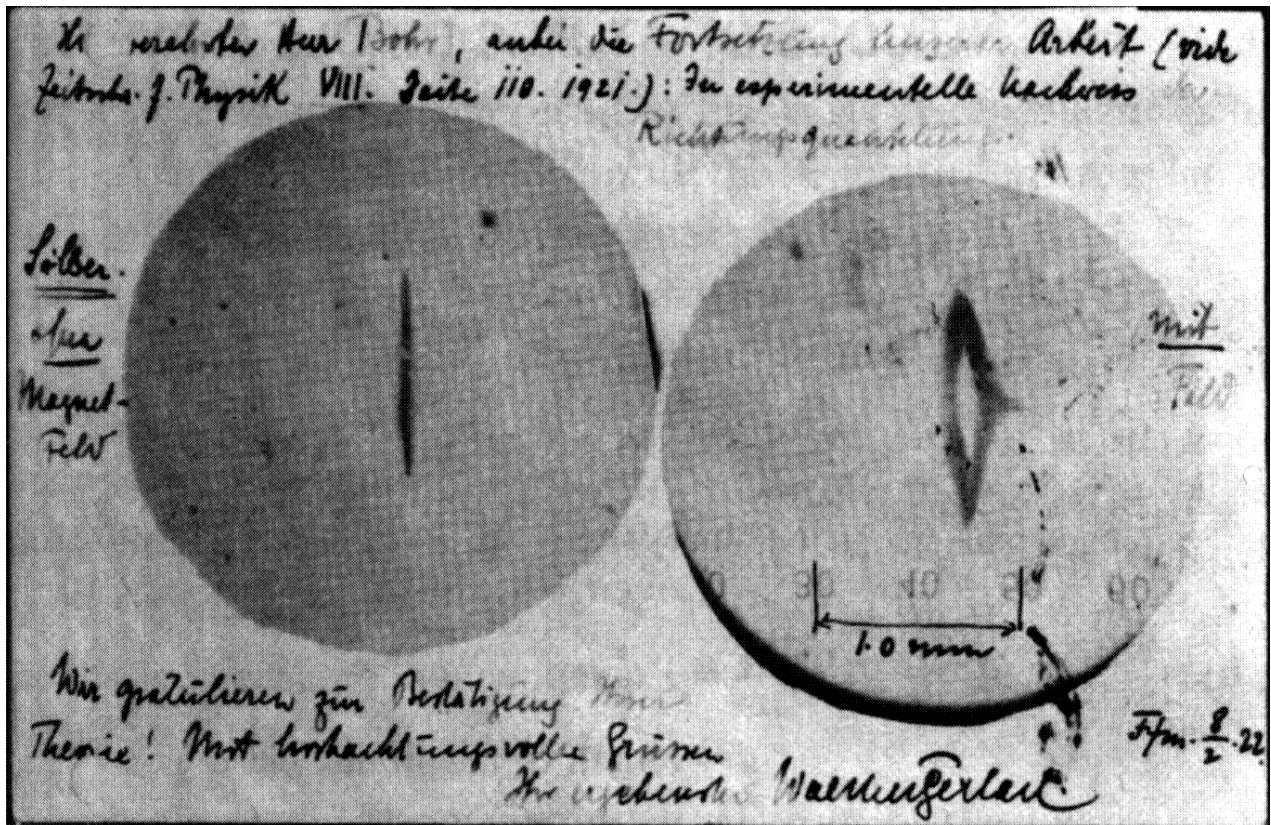 verehrter Herr Bohr, anbei die Fortsetzung unserer Arbeit (vide
Zeitschr. f. Physik VIII. Seite 110. 1921.): Der experimentelle Nachweis der
Richtungsquantelung.
Silber.
ohne
Magnet-
Feld
mit
Feld
0 30 40 50 60
1.0 mm
Wir gratulieren zur Bestätigung Ihrer
Theorie! Mit hochachtungsvollen Grüssen
Ihr ergebenster Walther Gerlach.
Ffm. 8/2.22.